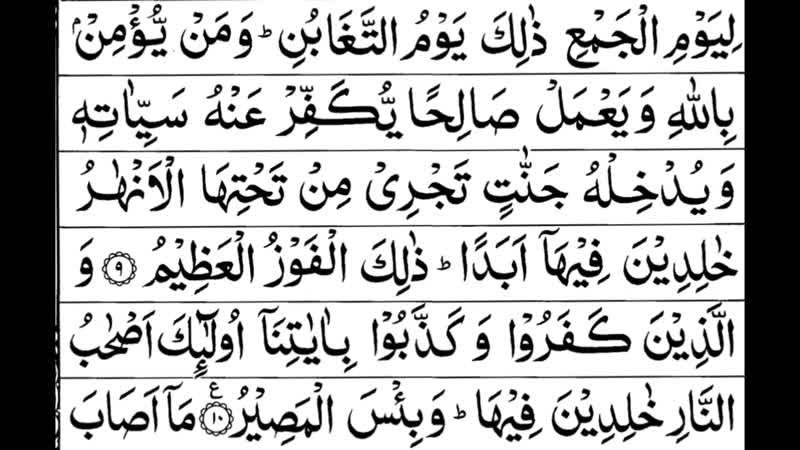 لِيَوْمِ الْجَمْعِ ذٰلِكَ يَوْمُ التَّغَابُنِ ؕ وَمَنْ يُّؤْمِنْۢ
بِاللّٰهِ وَيَعْمَلْ صَالِحًا يُّكَفِّرْ عَنْهُ سَيِّاٰتِهٖ
وَيُدْخِلْهُ جَنّٰتٍ تَجْرِىْ مِنْ تَحْتِهَا الْاَنْهٰرُ
خٰلِدِيْنَ فِيْهَاۤ اَبَدًا ؕ ذٰلِكَ الْفَوْزُ الْعَظِيْمُ ۝۹ وَ
الَّذِيْنَ كَفَرُوْا وَكَذَّبُوْا بِاٰيٰتِنَاۤ اُولٰٓئِكَ اَصْحٰبُ
النَّارِ خٰلِدِيْنَ فِيْهَا ؕ وَبِئْسَ الْمَصِيْرُ ۝۱۰ ع مَاۤ اَصَابَ